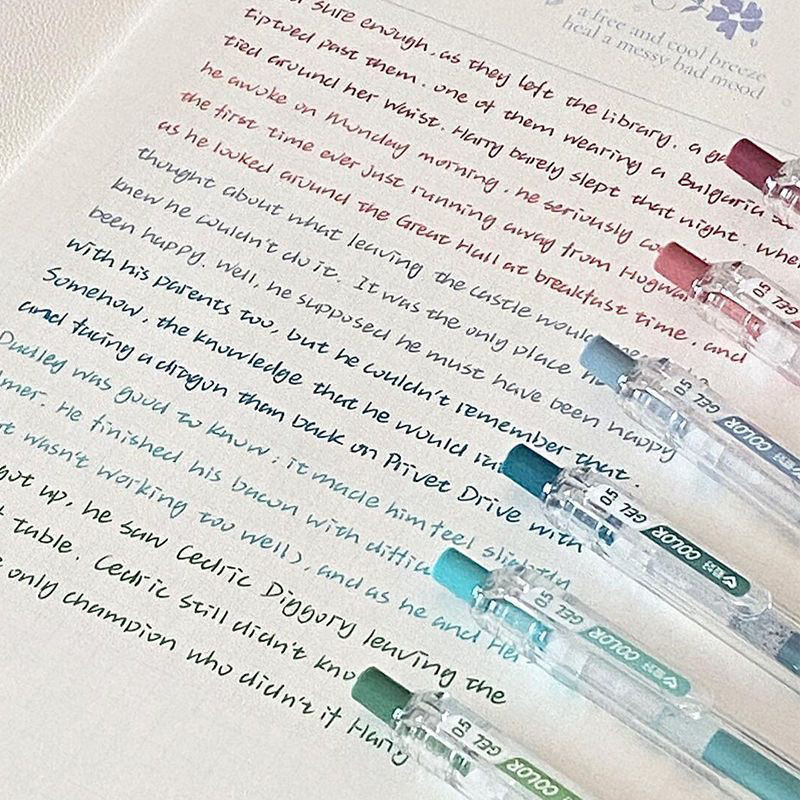 a free and cool breeze
heal a messy bad mood
sure enough, as they left the library, a
tiptoed past them, one of them wearing a Bulgaria
tied around her waist. Harry barely slept that night. When
he awoke on Monday morning, he seriously
the first time ever just running away from
as he looked around the Great Hall at breakfast time, and
thought about what leaving the castle would
knew he couldn't do it. It was the only place
been happy. Well, he supposed he must have been happy
with his parents too, but he couldn't remember that.
Somehow, the knowledge that he would
and facing a dragon than back on Privet Drive with
Dudley was good to know; it made him feel slightly
He finished his bacon with
wasn't working too well), and as he and
got up, he saw Cedric Diggory leaving the
table. Cedric still didn't
only champion who didn't if Harry
GEL 0.5
GEL 0.5 COLOR
GEL 0.5 COLOR
GEL 0.5 COLOR
GEL 0.5 COLOR